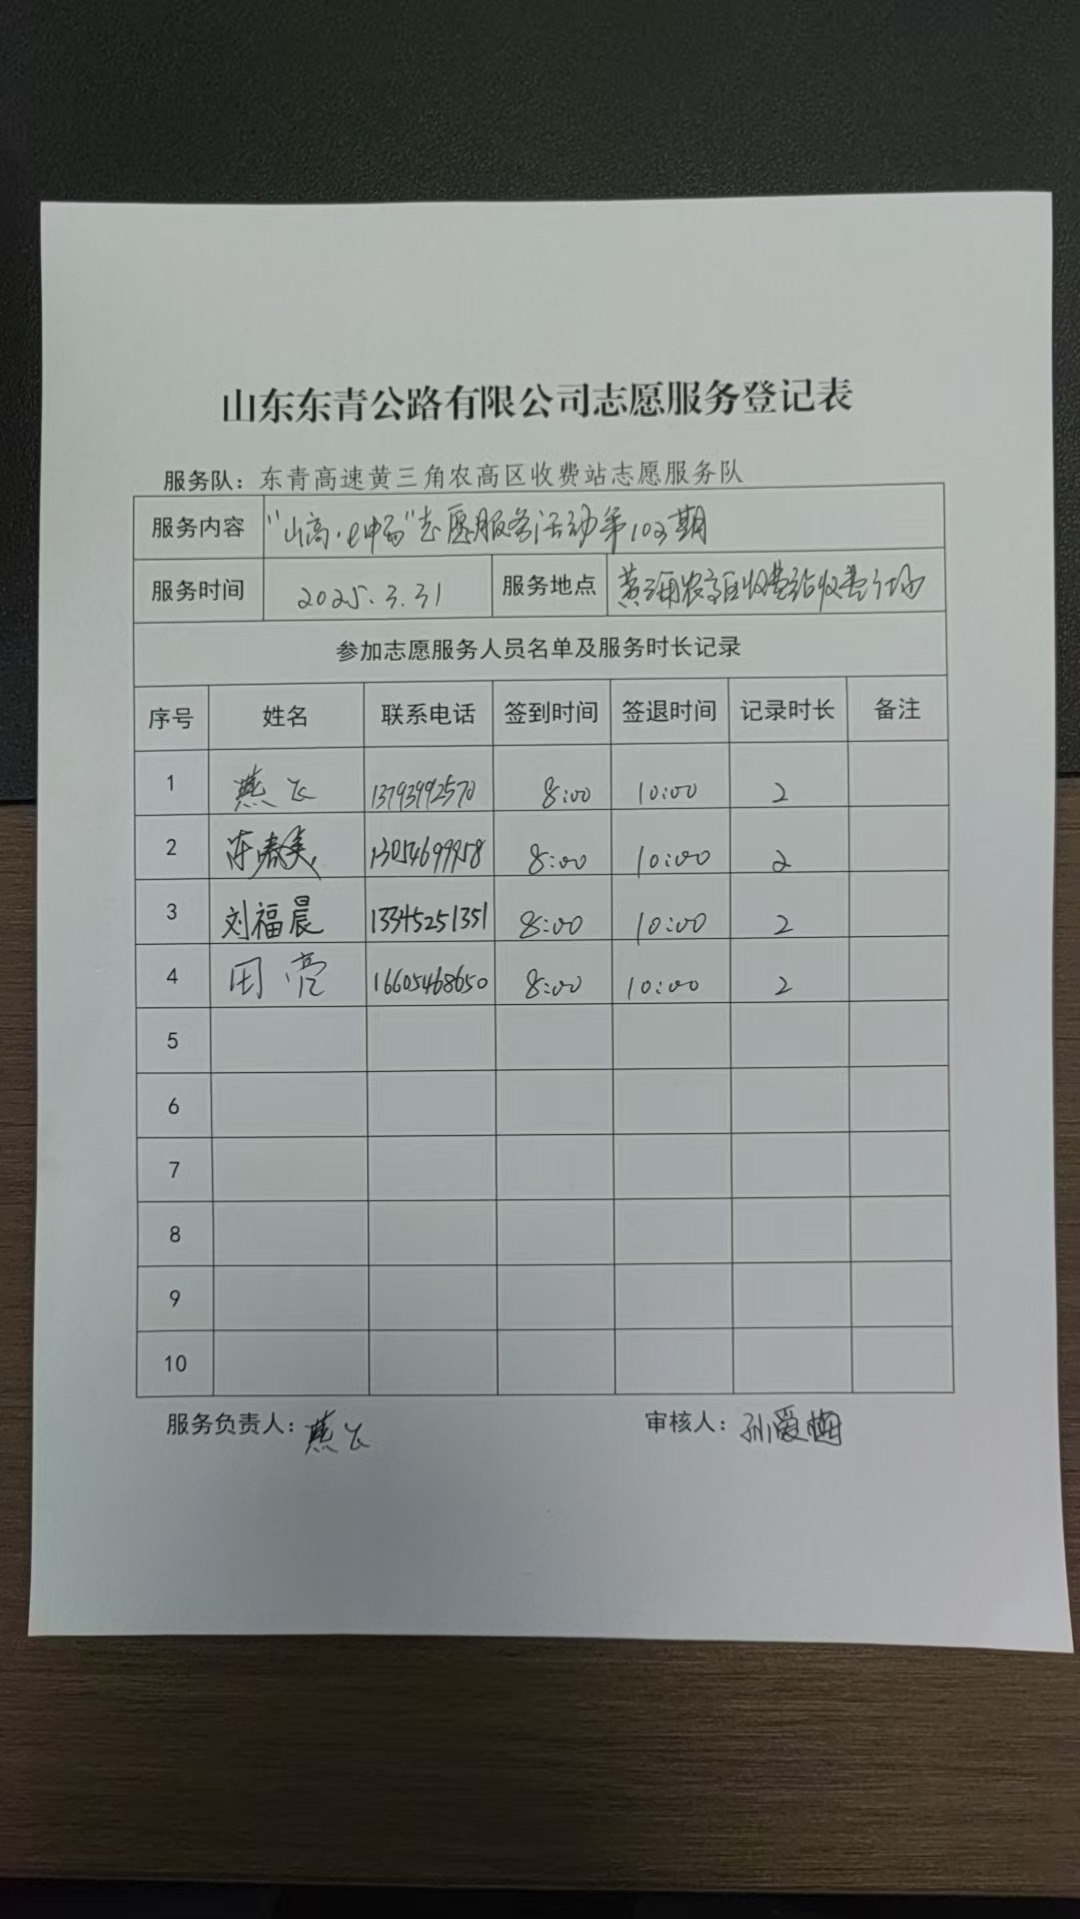 山东东青公路有限公司志愿服务登记表
服务队：东青高速黄三角农高区收费站志愿服务队
服务内容 "山高·e中高"志愿服务活动第103期
服务时间 2025.3.31 服务地点 黄三角农高区收费站收费广场
参加志愿服务人员名单及服务时长记录
序号 姓名 联系电话 签到时间 签退时间 记录时长 备注
1 燕飞 13793992570 8:00 10:00 2
2 陈春美 13054699958 8:00 10:00 2
3 刘福晨 13345251351 8:00 10:00 2
4 田亮 16605468650 8:00 10:00 2
5
6
7
8
9
10
服务负责人：燕飞 审核人：孙爱梅